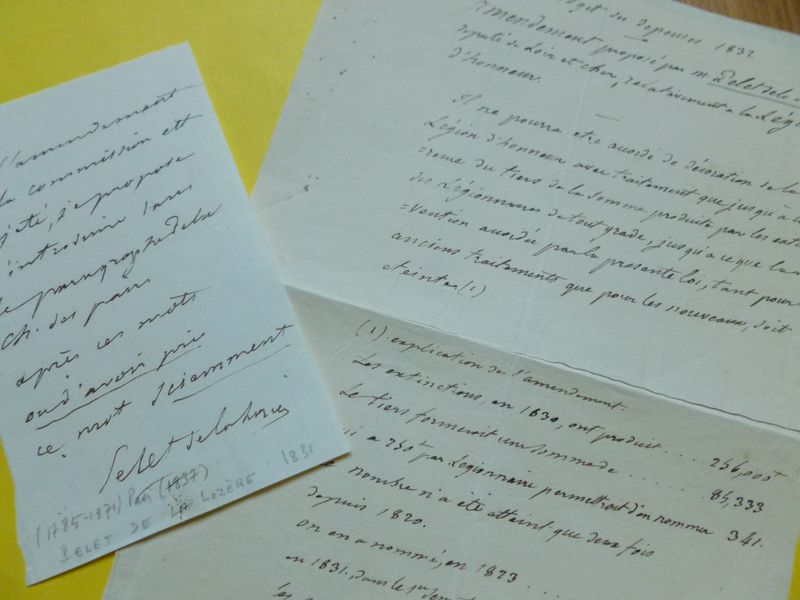 l'amendement
la commission est
jeté, je propose
introduire dans
le paragraphe de la
Ch. des pairs
après ces mots
ou d'avoir pris
ce mot sciemment
Pelet de la Lozère
(1785-1871) Pair (1837)
PELET DE LA LOZÈRE. 1831
Budget des dépenses 1832
amendement proposé par M. Pelet de la
député de Loir et Cher, relativement à la Légion
d'honneur.
Il ne pourra être accordé de décoration de la
Légion d'honneur avec traitement que jusqu'à
=rence du tiers de la somme produite par les
des Légionnaires de tout grade, jusqu'à ce que la
=vention accordée par la présente loi, tant pour
anciens traitements que pour les nouveaux, soit
éteinte. (1)
(1) explication de l'amendement.
Les extinctions, en 1830, ont produit .... 256,000f
Le tiers formerait une somme de ...... 85,333
qui a 250f par Légionnaire permettroit d'en nommer 341.
Ce nombre n'a été atteint que deux fois
depuis 1820.
On en a nommé, en 1823 ....
en 1831, dans le
les